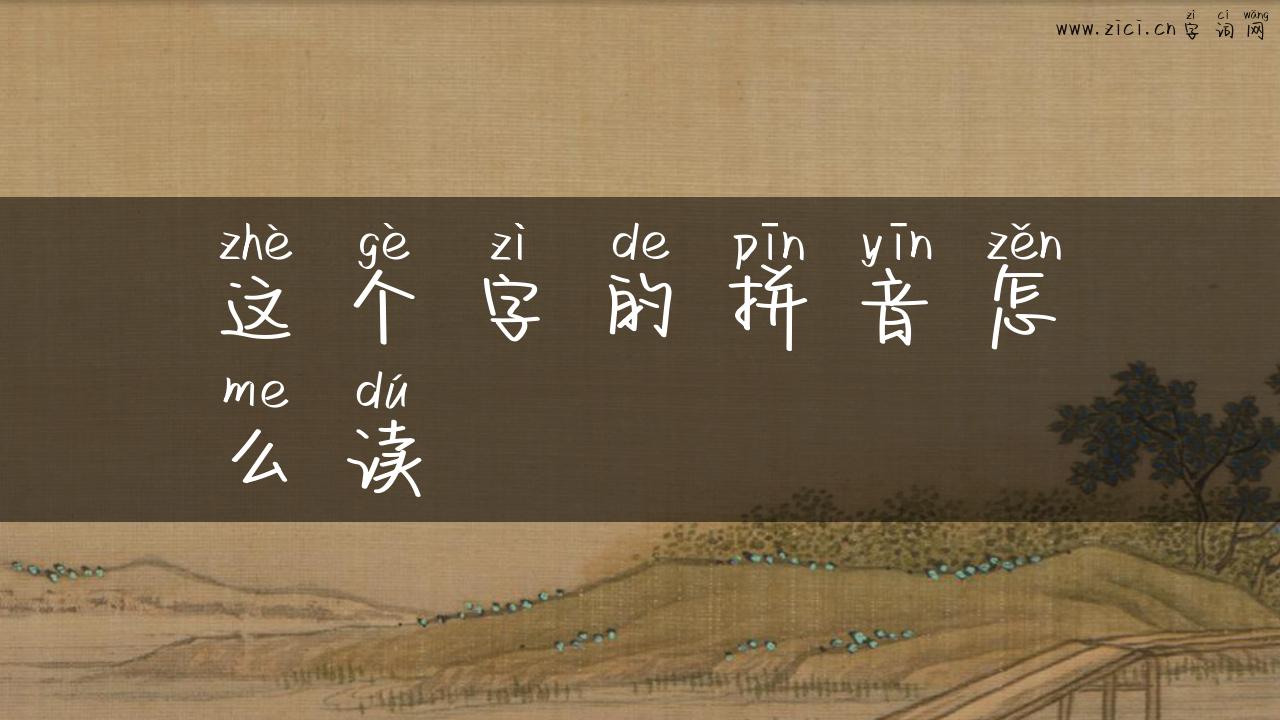 zì cí wǎng
www.zici.cn字词网
zhè gè zì de pīn yīn zěn
这个字的拼音怎
me dú
么读